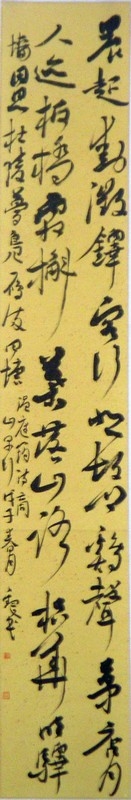 晨起動徵鐸客行悲故鄉鷄聲茅店月
人迹板橋霜槲葉落山路枳花明驛
墻因思杜陵夢鳧雁滿回塘
温庭筠诗商
山早行戊子春月